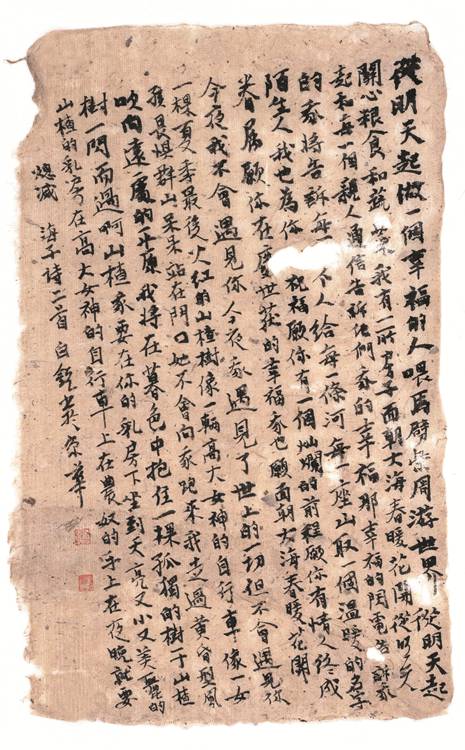 從明天起做一個幸福的人喂馬劈柴周游世界從明天起
關心粮食和蔬菜我有一所房子面朝大海春暖花開從明天
起和每一個親人通信告訴他們我的幸福那幸福的閃電告訴我
的我將告訴每个人給每條河每一座山取一個温暖的名字
陌生人我也為你祝福願你有一個燦爛的前程願你有情人終成
眷屬願你在塵世获的幸福我也願面朝大海春暖花開
今夜我不會遇見你今夜我遇見了世上的一切但不會遇見你
一棵夏季最後火红的山楂樹像一輛高大女神的自行車像一女
孩畏惧群山呆呆站在門口她不會向我跑來我走過黄昏像風
吹向遠處的平原我將在暮色中抱住一棵孤獨的樹干山楂
樹一閃而過啊山楂我要在你的乳房下坐到天亮又小又美麗的
山楂的乳房在高大女神的自行車上在農奴的手上在夜晚就要
熄滅 海子诗二首 白